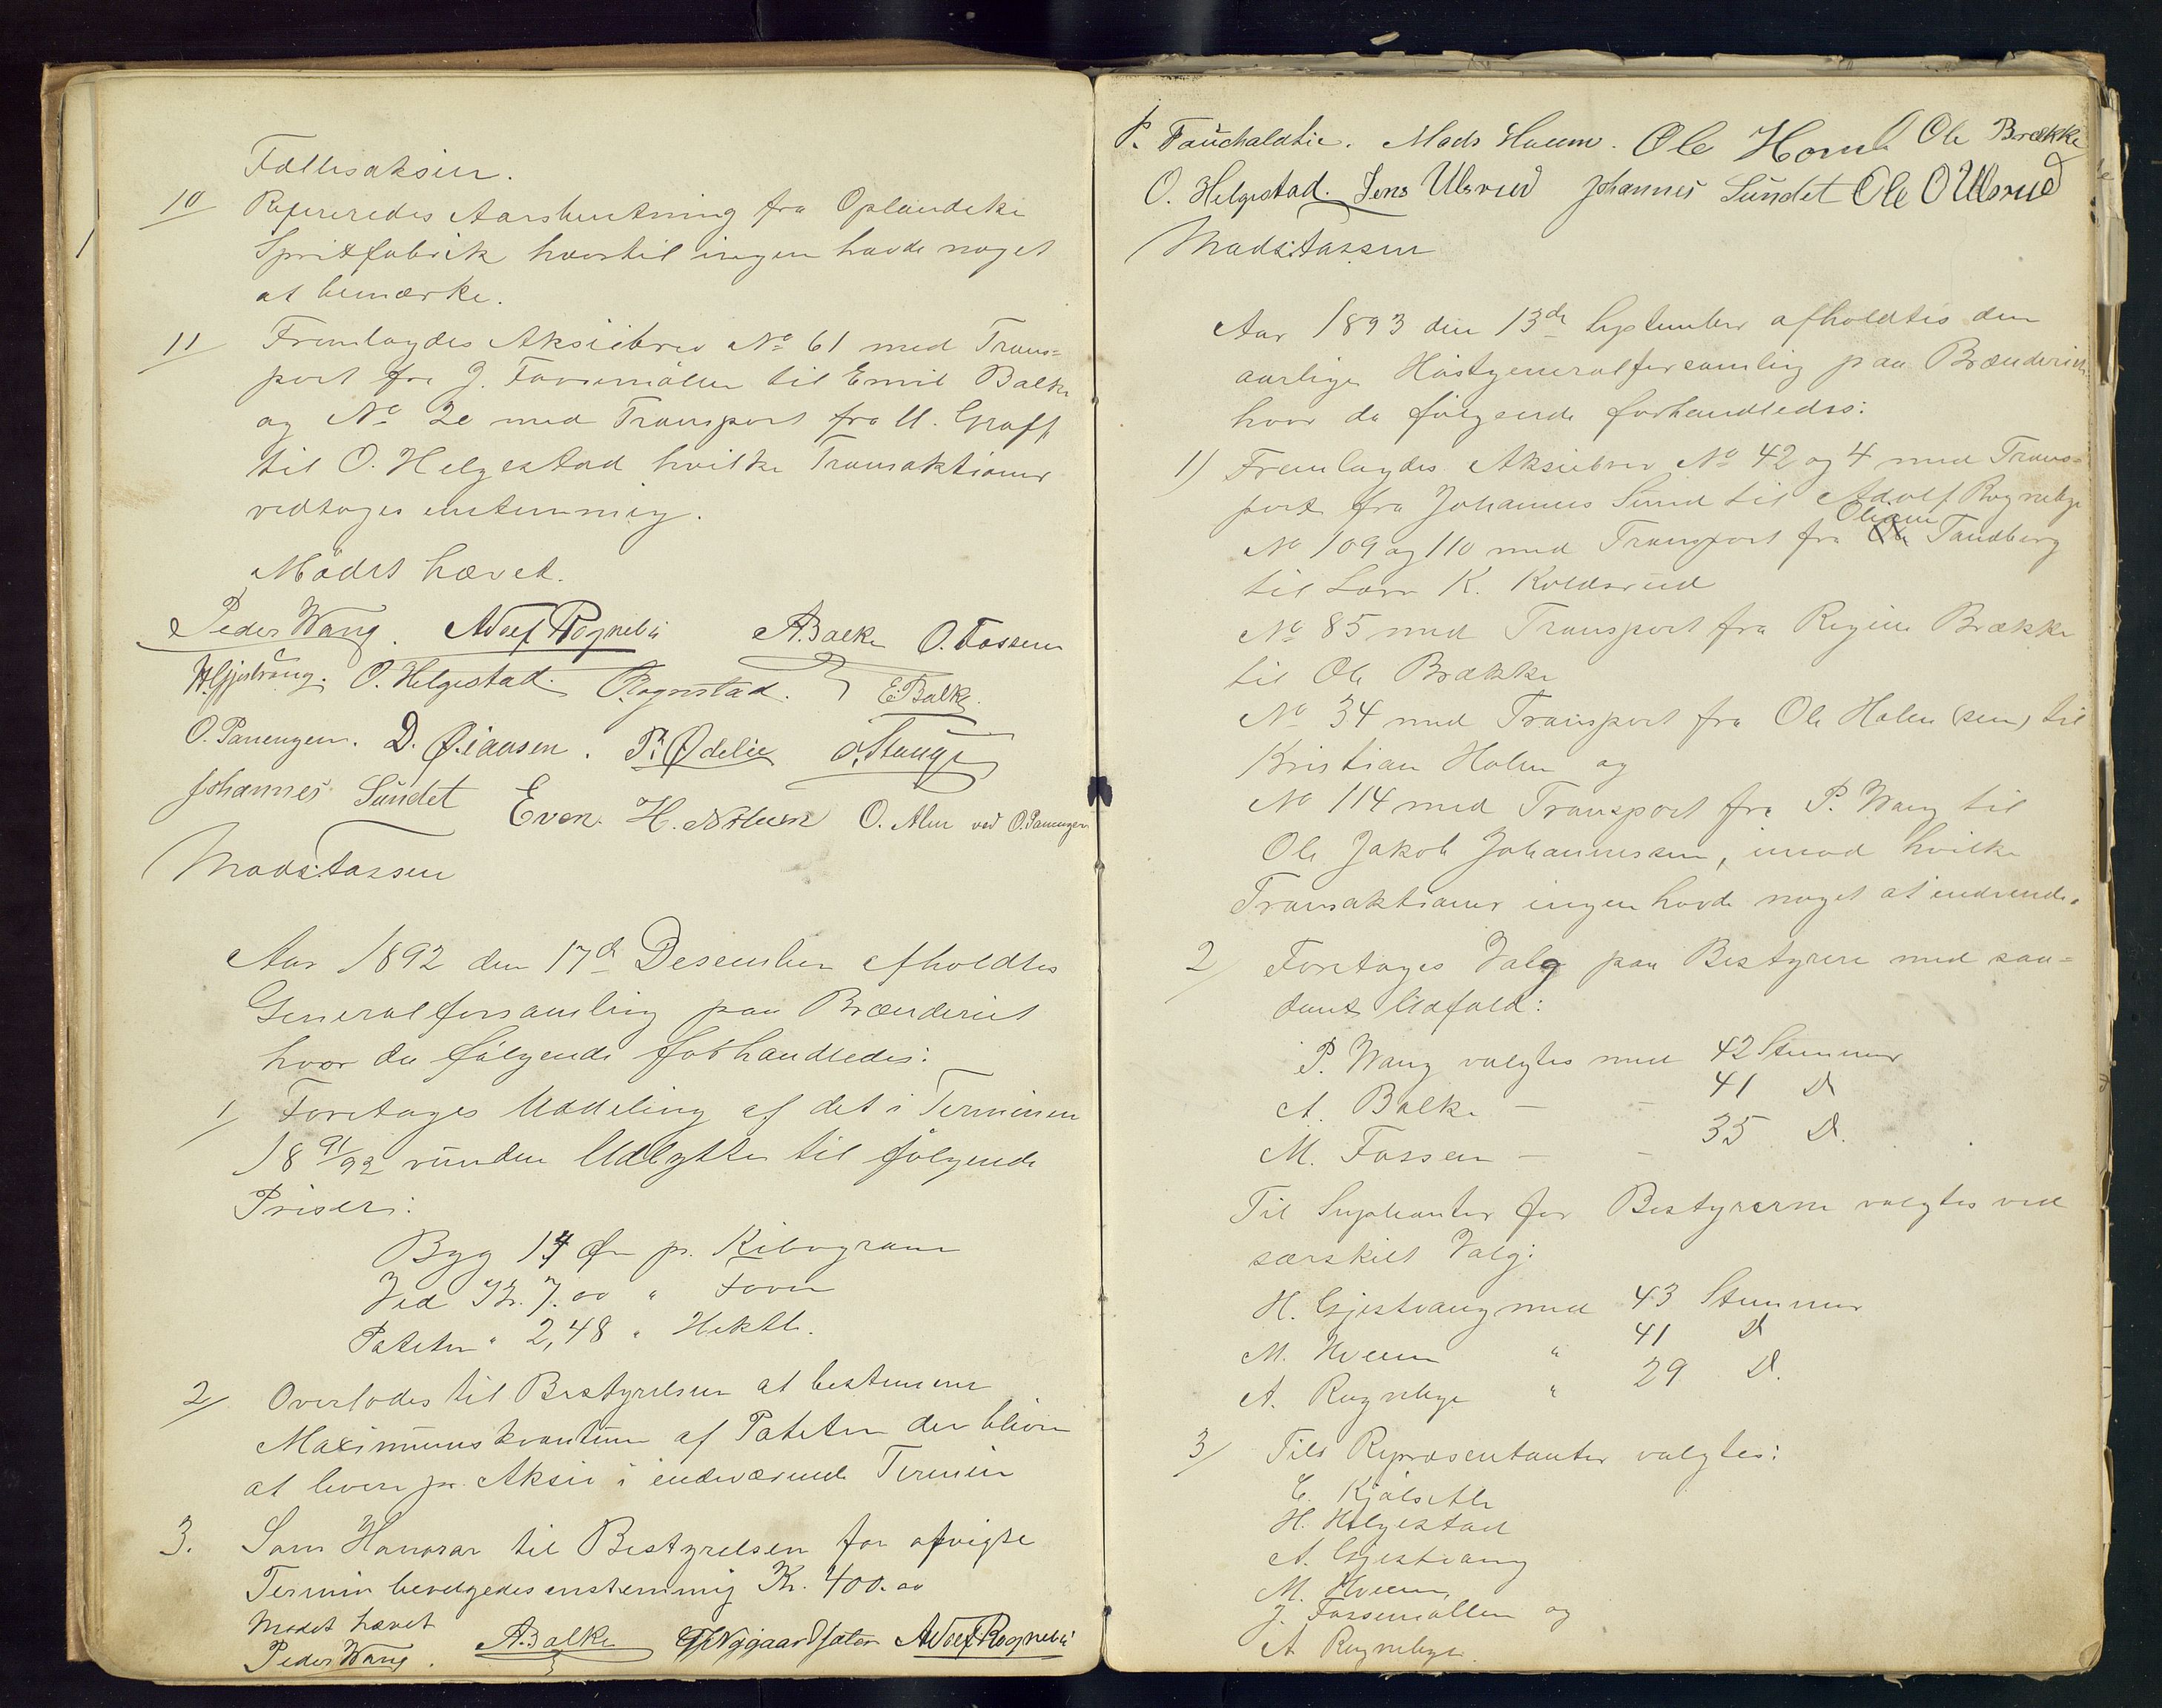 Fællesaksier.
10 Refereredes Aarsberetning fra Oplandske
Spritfabrik hvortil ingen havde noget
at bemærke.
11 Fremlagdes Aksiebrev No 61 med Trans=
port fra J. Fossemøllen til Emil Balke
og No 20 med Transport fra U. Graff
til O. Helgestad hvilke Transaktioner
vedtoges enstemmig.
Mødet hævet.
Peder Wang. Adolf Rognebÿ A. Balke O. Fossen
H. Gjestvang. O. Helgestad. Rognstad. E. Balke.
O. Panengen. D. Øiaasen. P. Ødelie O. Stange
Johannes Sundet Even H. Alm O. Alm ved O. Panengen
Mads Fossen
Aar 1892 den 17d Desember afholdtes
Generalforsamling paa Brænderiet
hvor da følgende forhandledes:
1/ Foretoges Uddeling af det i Terminen
18 91/92 vundne Udbytte til følgende
Priser:
Byg 14 Øre pr. Kilogram
Ved Kr. 7.00 " Favn
Poteter " 2,48 " Hektl.
2/ Overlodes til Bestyrelsen at bestemme
Maximumskvantum af Poteter der bliver
at levere pr. Aksie i indeværende Termin
3. Som Honorar til Bestyrelsen for afvigte
Termin bevilgedes enstemmig Kr. 400.00
Mødet hævet
Peder Wang. A. Balke Nÿgaard Adolf Rognebÿ
P. Fauchaldlie. Mads Hveem. Ole Horne Ole Brække
O. Helgestad. Jens Ulsrud Johannes Sundet Ole O Ulsrud
Mads Fossen
Aar 1893 den 13de September afholdtes den
aarlige Høstgeneralforsamling paa Brænderiet
hvor da følgende forhandledes:
1) Fremlagdes Aksiebrev No 42 og 4 med Trans=
port fra Johannes Sund til Adolf Rognebye
Oliane
No 109 og 110 med Transport fra Tandberg
til Lars K. Koldsrud
No 85 med Transport fra Regine Brække
til Ole Brække
No 34 med Transport fra Ole Holen (sen) til
Kristian Holen og
No 114 med Transport fra P. Wang til
Ole Jakob Johannessen, imod hvilke
Transaktioner ingen havde noget at indvende.
2/ Foretoges Valg paa Bestyrere med saa=
dant Udfald:
P. Wang valgtes med 42 Stemmer
A. Balke — - 41 D
M. Fossen — - 35 D.
Til Suplianter for Bestyrerne valgtes ved
særskilt Valg:
H. Gjestvang med 43 Stemmer
M. Hveem " 41 D
A. Rognebye " 29 D.
3/ Till Repræsentanter valgtes:
C. Kjølseth
H. Helgestad
A. Gjestvang
M. Hveem,
J. Fossemøllen og
A Rognebye.